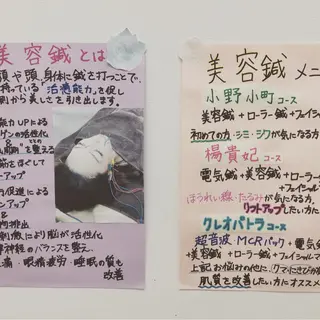 美容鍼とは
顔や頭、身体に鍼を打つことで、
持っている"活性能力"を促し
側から美しさを引き出します。
能力UPによる
ゲンの活性化
"を整える
筋をほぐして
アップ
行促進による
ンアップ
&
物排出
刺激により脳が活性化
律神経のバランスを整え、
痛・眼精疲労・睡眠の質も
改善
美容鍼メニ
小野小町コース
美容鍼+ローラー鍼+フェイシャル
初めての方・シミ・シワが気になる方
楊貴妃コース
電気鍼+美容鍼+ローラー鍼
+フェイシャル
ほうれい線・たるみが気になる方、
リフトアップしたい方に
クレオパトラコース
超音波・MCRパック+電気鍼
+美容鍼+ローラー鍼+フェイシャルマ
上記お悩みの他に、クマ・にきびが
肌質を改善したい方にオススメ